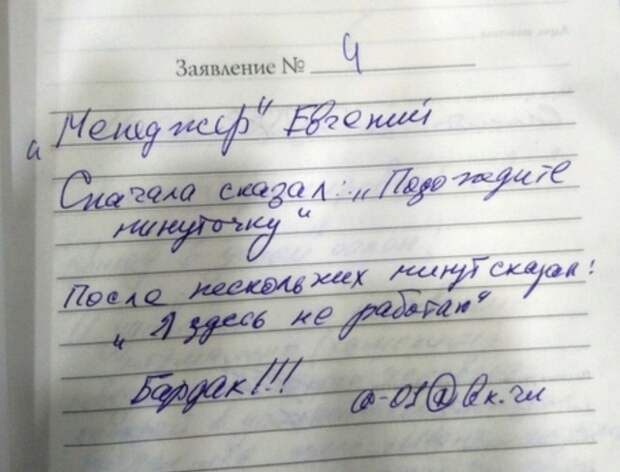 Заявление № 4
„Менеджер" Евгений
Сначала сказал: „Подождите
минуточку"
После нескольких минут сказал:
„Я здесь не работаю"
Бардак!!!